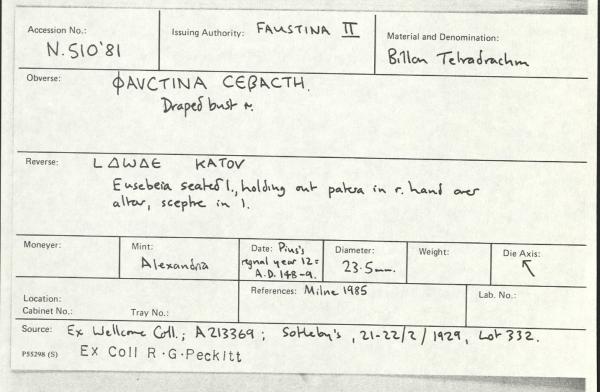 Accession No.:
N.510'81
Issuing Authority: FAUSTINA II
Material and Denomination:
Billon Tetradrachm
Obverse: ΦΑVCTINA CEBACTH.
Draped bust r.
Reverse: L ΔWΔE KATOV
Eusebeia seated l., holding out patera in r. hand over
altar, sceptre in l.
Moneyer:
Mint:
Alexandria
Date: Pius's
regnal year 12 =
A.D. 148-9.
Diameter:
23.5mm.
Weight:
Die Axis:
↖
Location:
Cabinet No.: Tray No.:
References: Milne 1985
Lab. No.:
Source: Ex Wellcome Coll.; A213369; Sotheby's, 21-22/2/1929, Lot 332.
P55298 (S) Ex Coll R.G.Peckitt